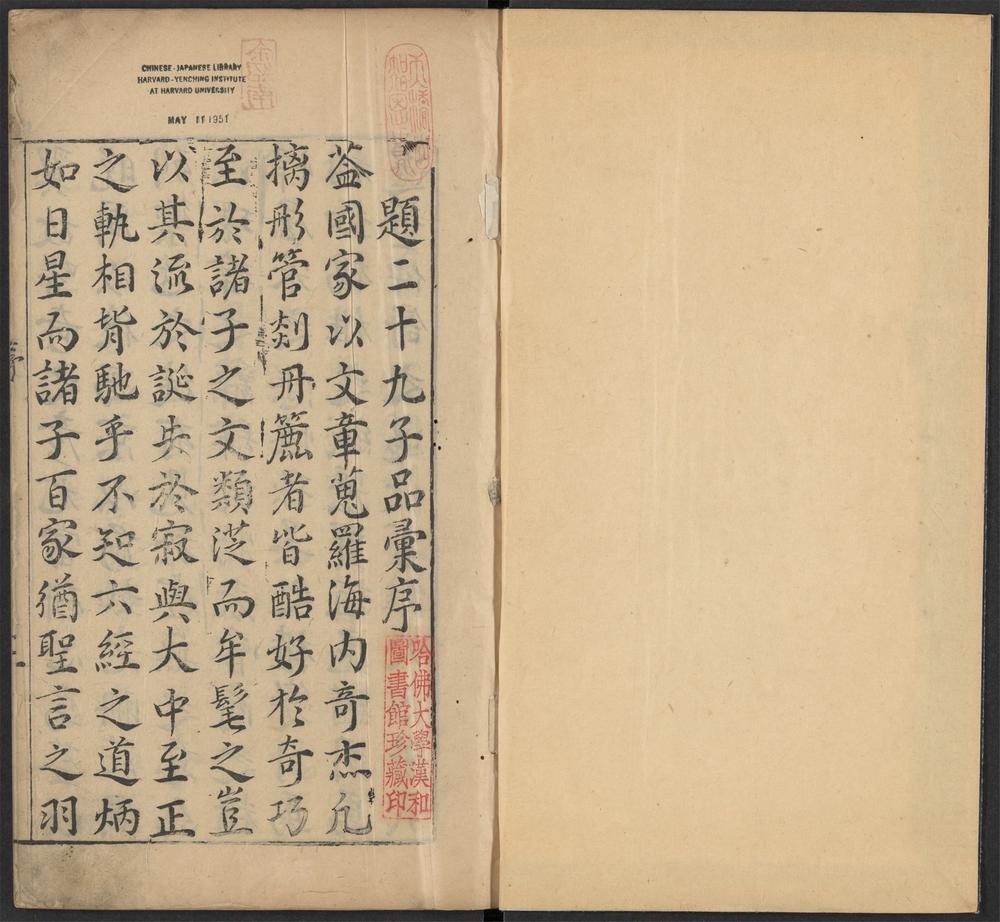 CHINESE-JAPANESE LIBRARY
HARVARD-YENCHING INSTITUTE
AT HARVARD UNIVERSITY
MAY 11 1951
題二十九子品彙序
葢國家以文章蒐羅海内奇杰凢
摛彤管剡丹簏者皆酷好於奇巧
至於諸子之文類茫而牟髦之豈
以其流於誕失於寂與大中至正
之軌相背馳乎不知六經之道炳
如日星而諸子百家猶聖言之羽
哈佛大學漢和
圖書館珍藏印
序